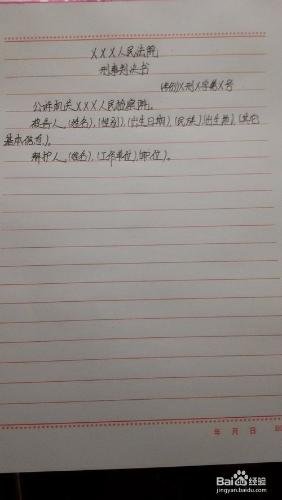 XXX人民法院
刑事判决书
(年份)X刑X字第X号
公诉机关XXX人民检察院。
被告人(姓名),(性别),(出生日期),(民族),(出生地),(其它
基本信息)。
辩护人(姓名),(工作单位),(职位)。
年 月 日
Bai百度经验